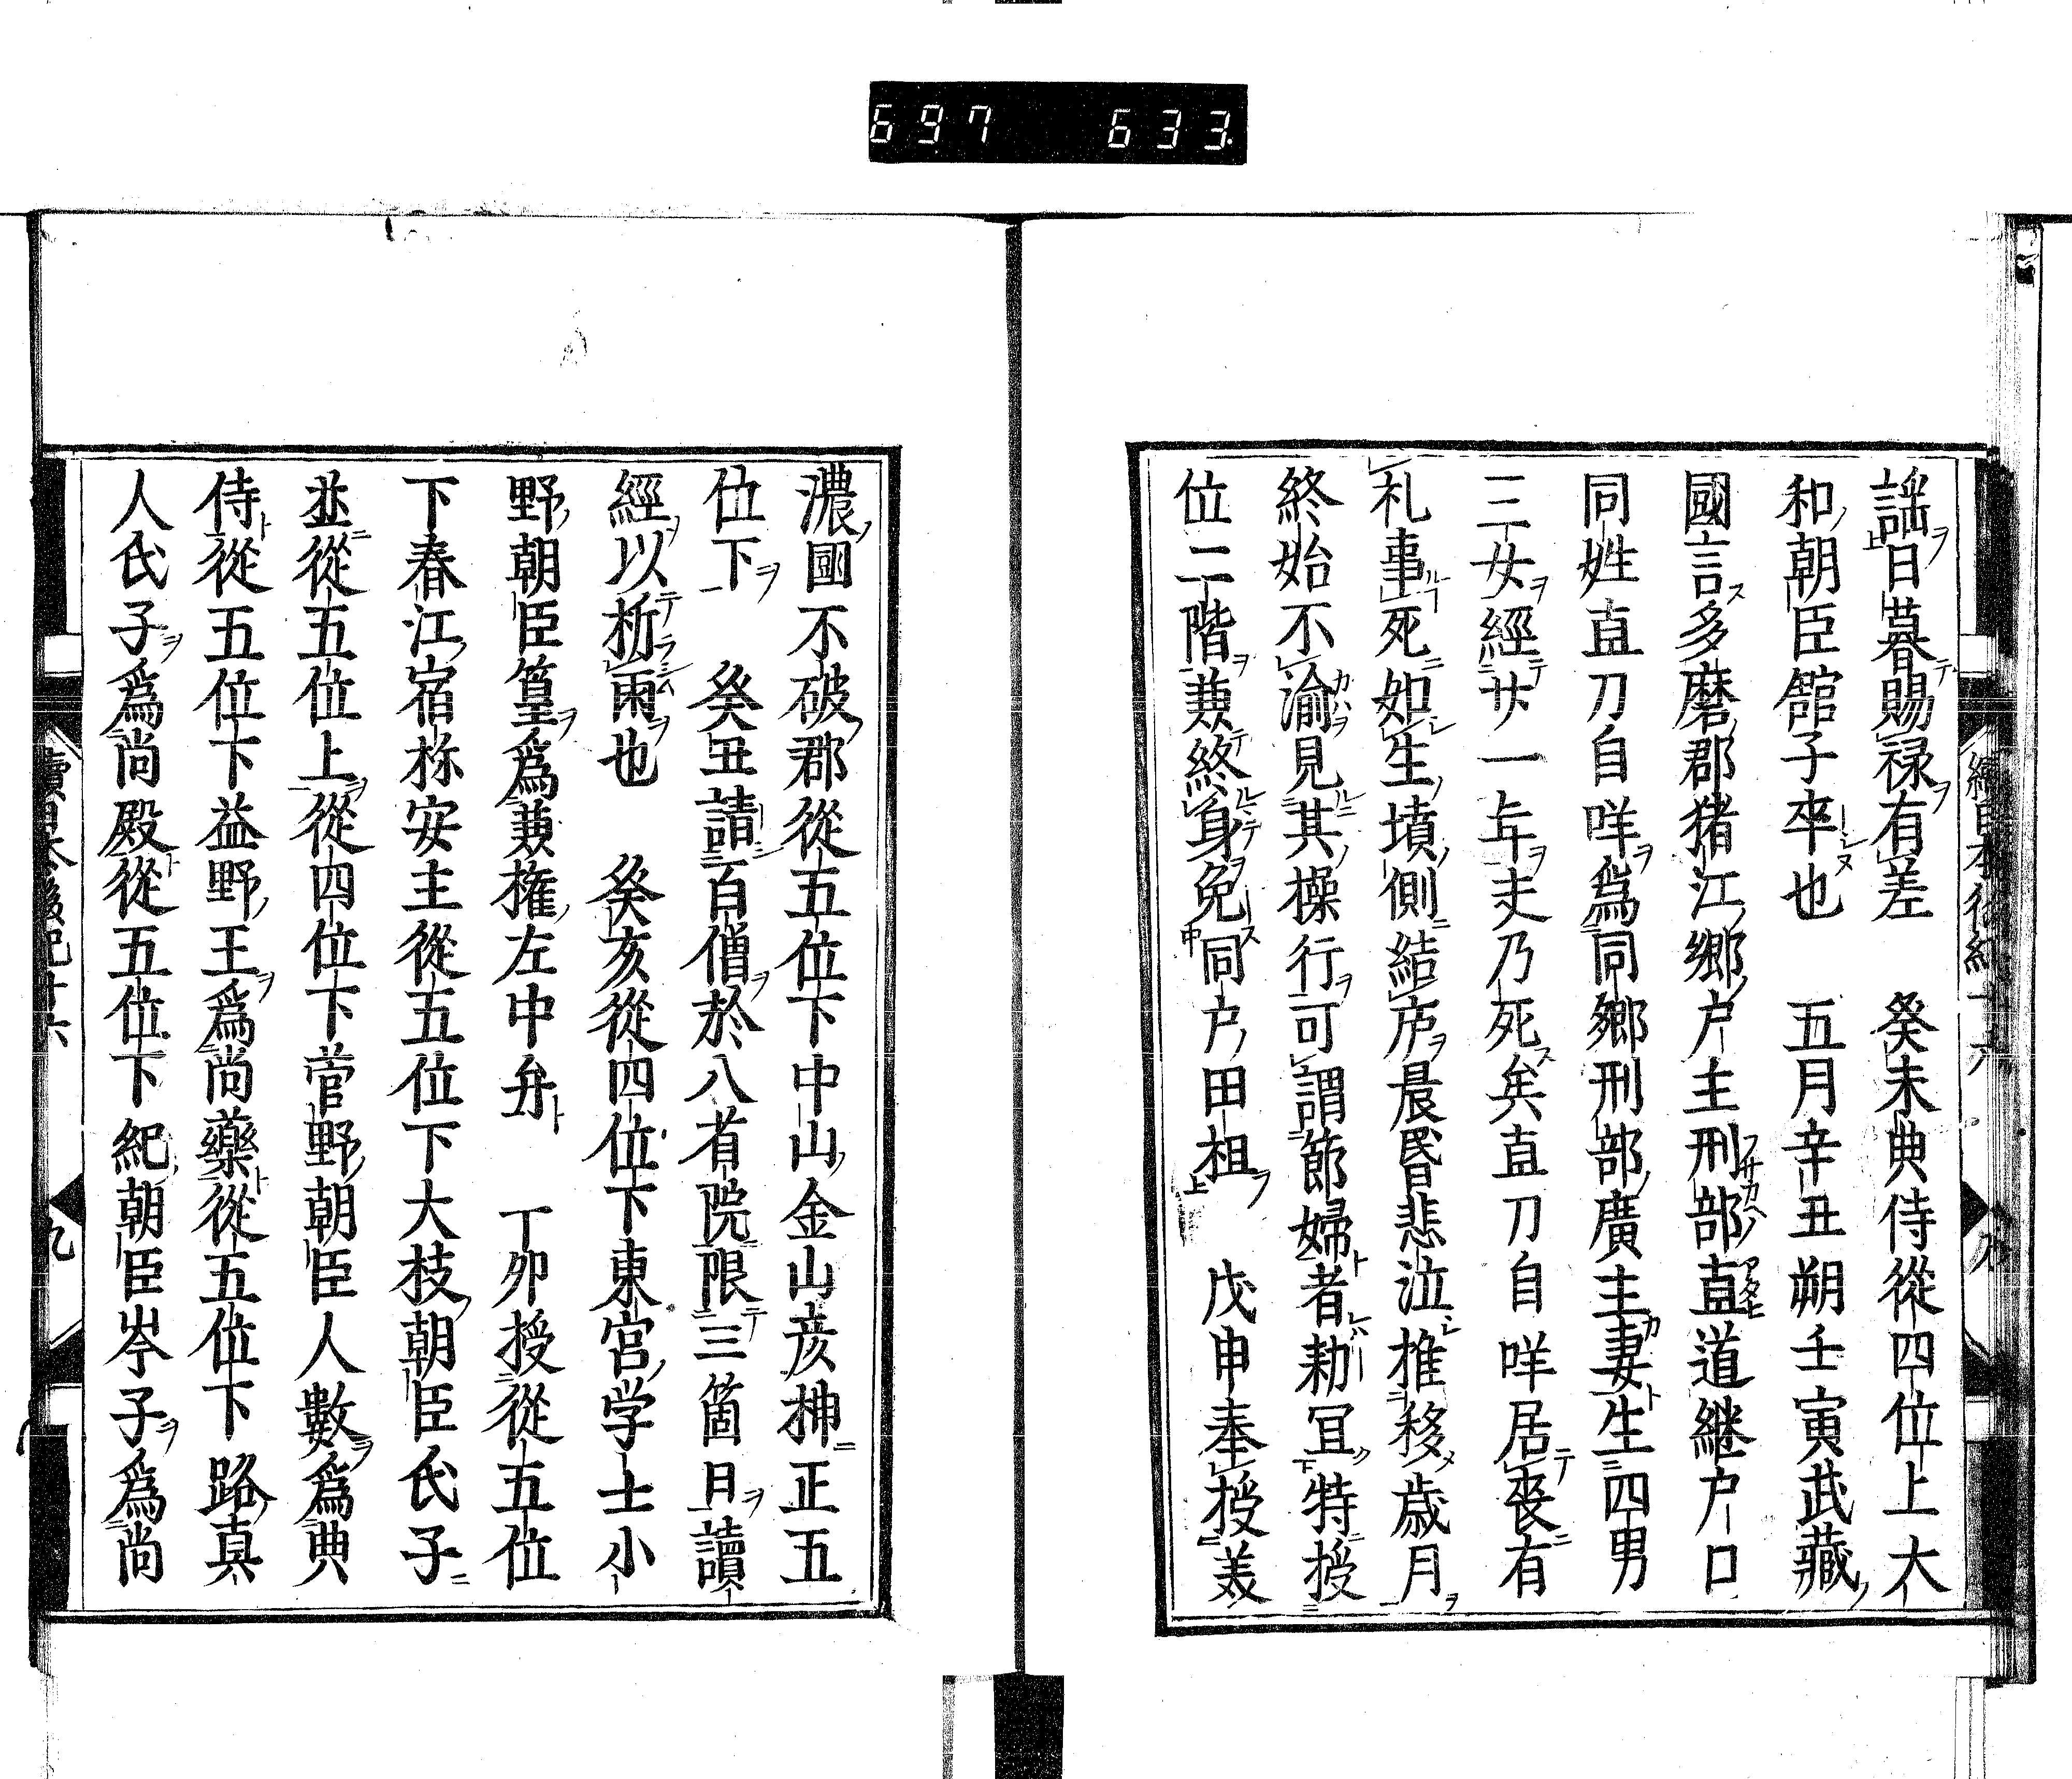 697 633
謡日暮賜禄有差　癸未典侍從四位上大
和朝臣舘子卒也　五月辛丑朔壬寅武藏
國言多磨郡猪江郷戸主刑部直道継戸口
同姓直刀自咩爲同郷刑部廣主妻生四男
三女經廿一年夫乃死矣直刀自咩居喪有
礼事死如生墳側結庐晨昏悲泣推移歳月
終始不渝見其操行可謂節婦者勅冝特授
位二階兼終身免同戸田祖　戊申奉授美
濃國不破郡從五位下中山金山彦神正五
位下　癸丑請百僧於八省院限三箇日讀
經以祈雨也　癸亥從四位下東宮学士小
野朝臣篁爲兼権左中弁　丁卯授從五位
下春江宿祢安主從五位下大枝朝臣氏子
並從五位上從四位下菅野朝臣人數爲典
侍從五位下益野王爲尚藥從五位下路真
人氏子爲尚殿從五位下紀朝臣岑子爲尚
續日本後紀十六
九